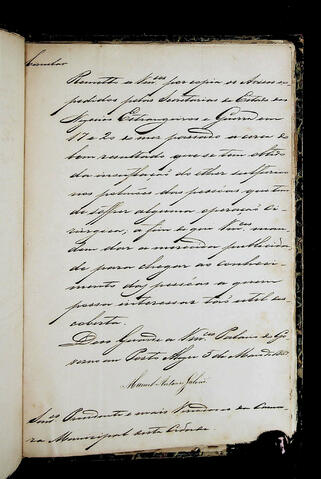 Circular
Remetto a Vm.ces por copia os Avisos ex-
pedidos pelas Secretarias de Estado dos
Negocios Estrangeiros e Guerra em
17 e 20 de mez passado acerca do
bom resultado que se tem obtido
da inspiração do ether sulfurico
nos pulmões das pessoas que tem
de soffrer alguma operação ci-
rurgica, a fim de que Vm.ces man-
dem dar a necessaria publicida-
de para chegar ao conheci-
mento das pessoas a quem
possa interessar tão util des-
coberta.
Deos Guarde a Vm.ces Palacio do Go-
verno em Porto Alegre 3 de Maio de
Manoel Antonio Galvão
Snr.es Presidente e mais Vereadores da Cama-
ra Municipal desta Cidade.